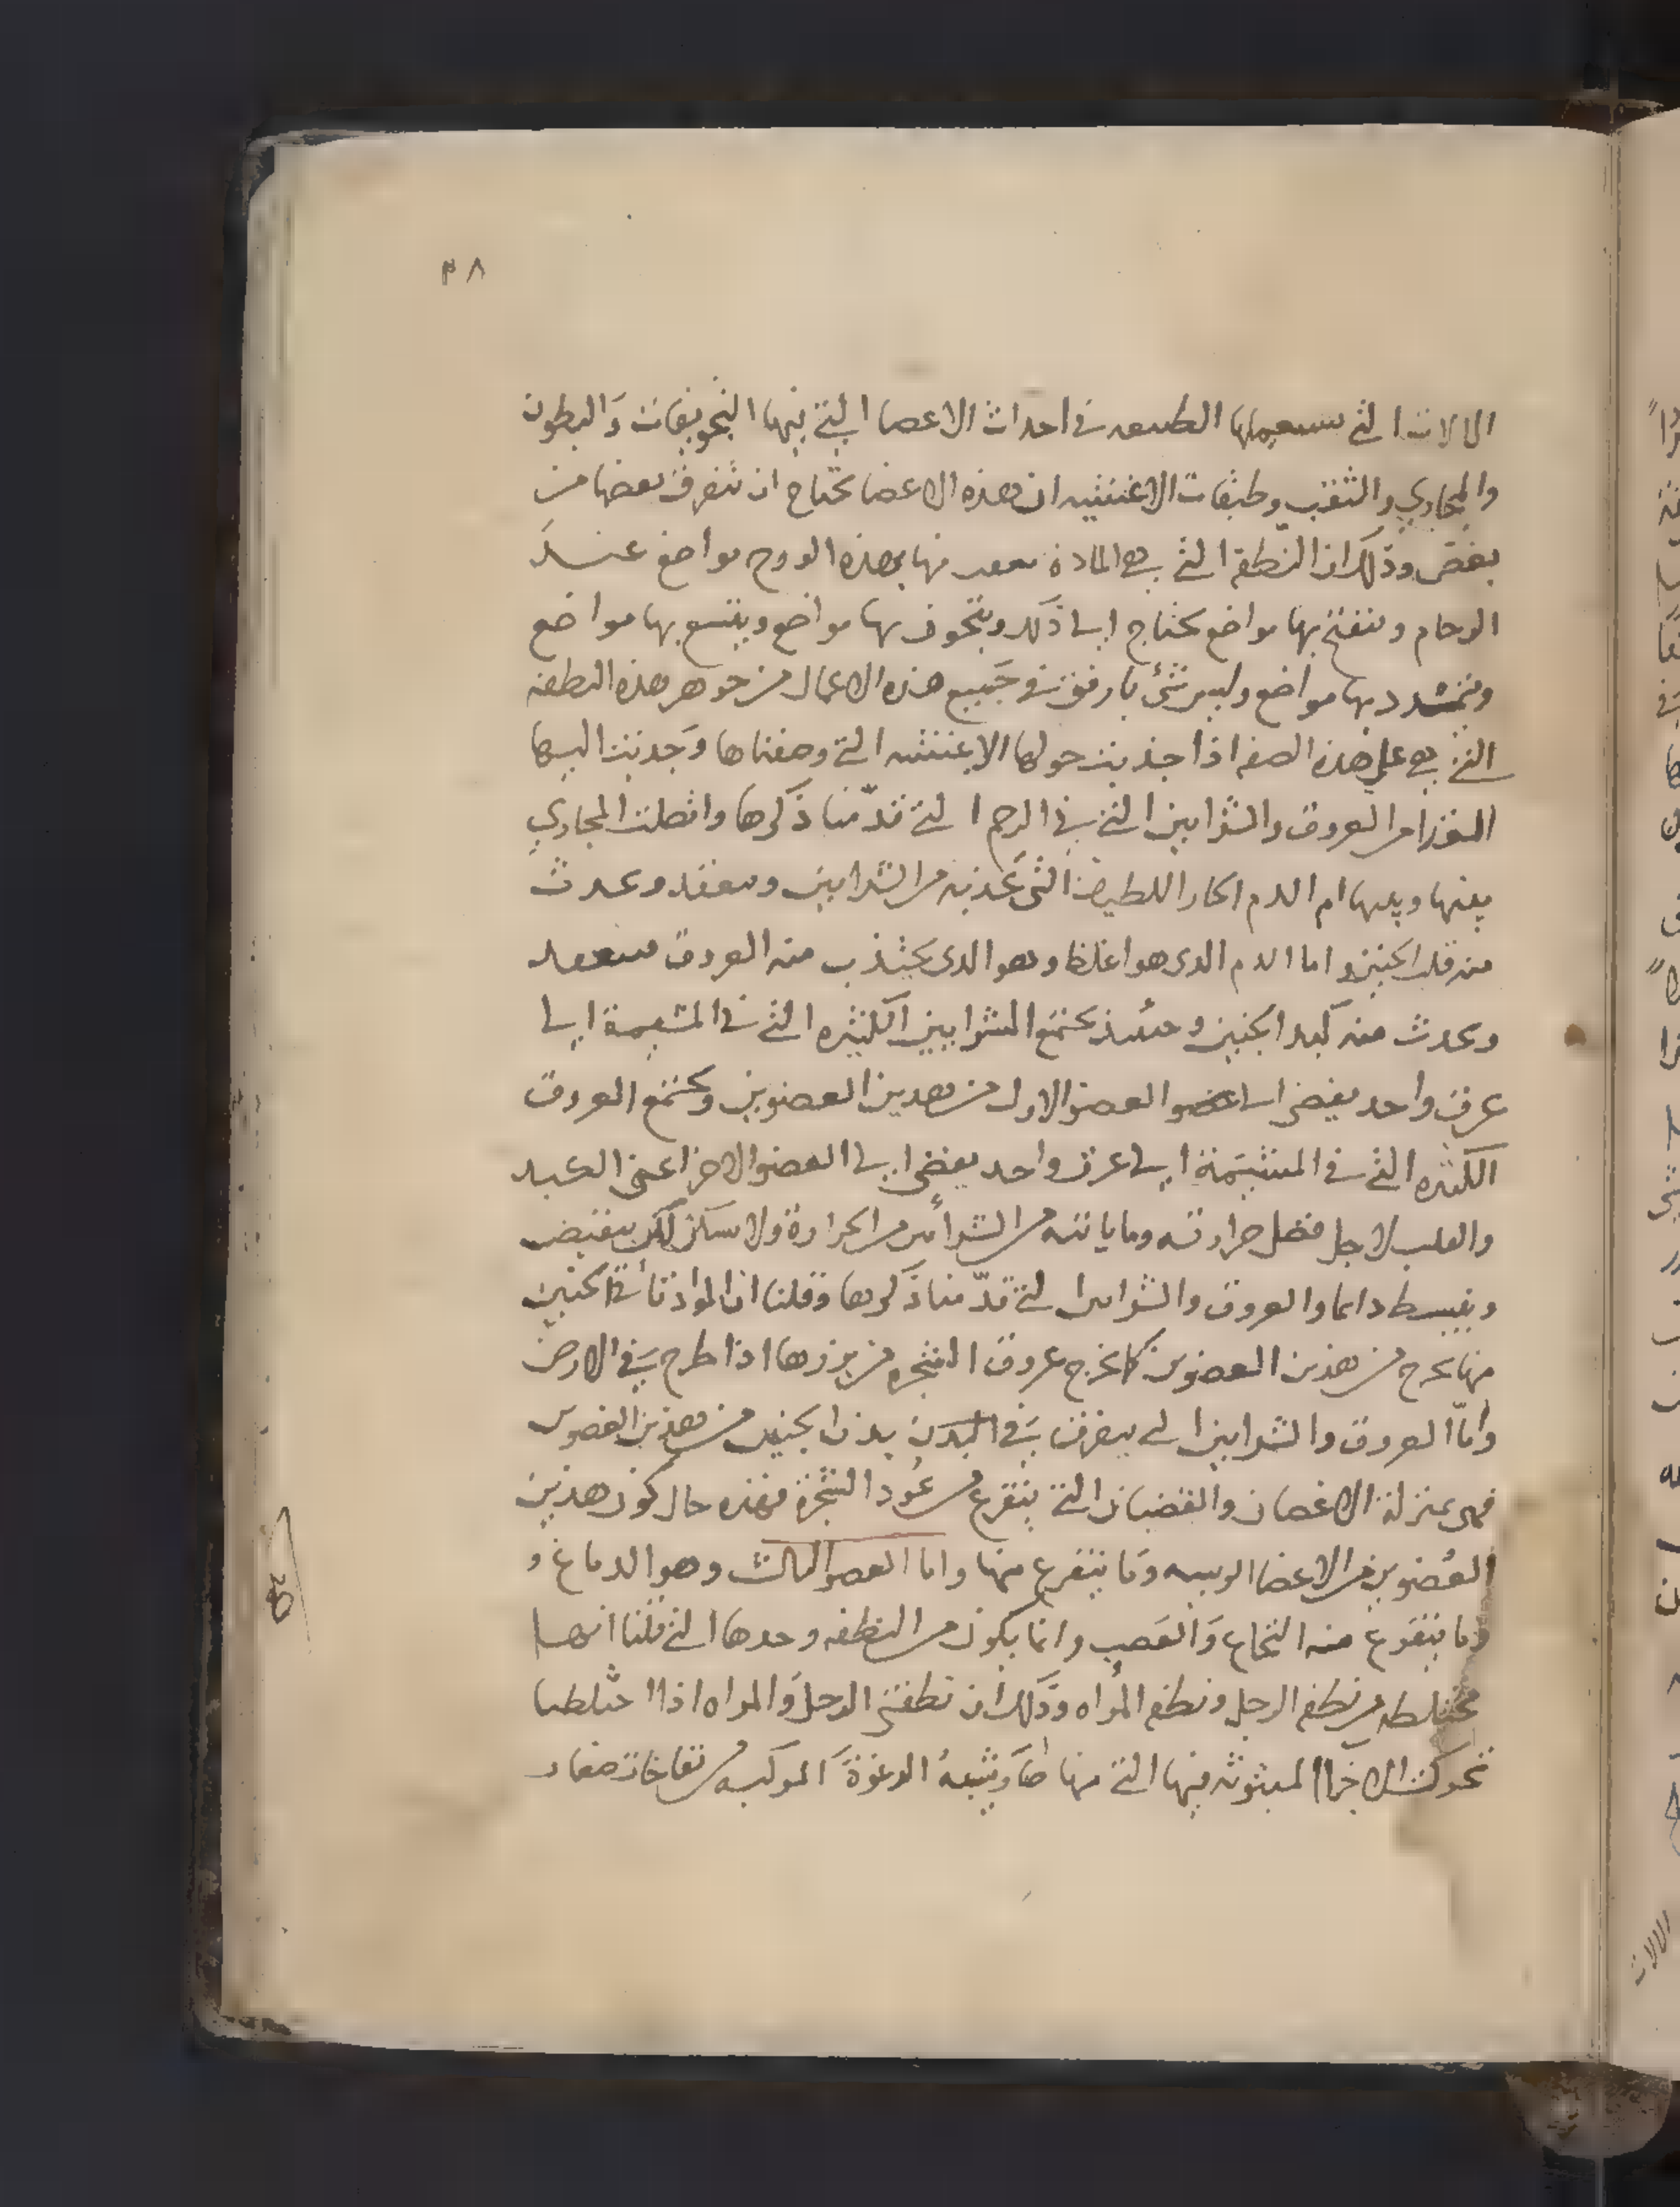 ٣٨
الالات التي يستعملها الطبيعه في احداث الاعضا التي فيها التجويفات والبطون
والمجاري والثقب وطبقات الاغشيه ان هذه الاعضا تحتاج ان تتفرق بعضها من
بعض وذلك ان النطفة التي هي المادة منها بهذه الروح مواضع عند
الرحام وتنفتح بها مواضع تحتاج الى ذلك ويتجوف بها مواضع ويتسع بها مواضع
وتتمدد بها مواضع وليس شئ بارفق في جميع هذه الاعمال من جوهر هذه النطفه
التي هي على هذه الصفه اذا جذبت حولها الاغشيه التي وصفناها وجذبت اليها
الغذا من العروق والشرايين التي في الرحم التي قدّمنا ذكرها واتصلت المجاري
بينها وبينها ام الدم الحار اللطيف التي تجذبه من الشرايين وينعقد ويحدث
منه قلب الجنين واما الدم الذى هو اغلظ وهو الذى يجتذب منه العروق فينعقد
ويحدث منه كبد الجنين وحينئذ تجتمع الشرايين الكثيره التي في المشيمة الى
عرق واحد يفضى الى عضو العضو الاول من هذين العضوين وتجتمع العروق
الكثيره التي في المشيمة الى عرق واحد يفضى الى العضو الاخر اعني الكبد
والقلب لاجل فضل حرارته وما ياتيه من الشرايين من الحرارة ولا يسكن لكن ينقبض
وينبسط دائما والعروق والشرايين التي قدّمنا ذكرها وقلنا ان المواد تأتي الجنين
منها تخرج من هذين العضوين كما تخرج عروق الشجره من بزرها اذا طرح في الارض
وامّا العروق والشرايين التي يتفرق في البدن بدن الجنين من هذين العضوين
فهى بمنزلة الاغصان والقضبان التي يتفرع من عود الشجرة فهذه حال كون هذين
العضوين من الاعضا الرييسه وما يتفرع منها واما العضو الثالث وهو الدماغ و
وما يتفرع منه النخاع والعصب وانما يكون من النطفه وحدها التي قلنا انها
مختلطه من نطفه الرجل ونطفه المراه وذلك ان نطفتي الرجل والمراه اذا اختلطتا
تحركت الاجزا المبثوثه فيها التي منها شبيهة الرغوة المركبه من نفاخات صغار
الالات